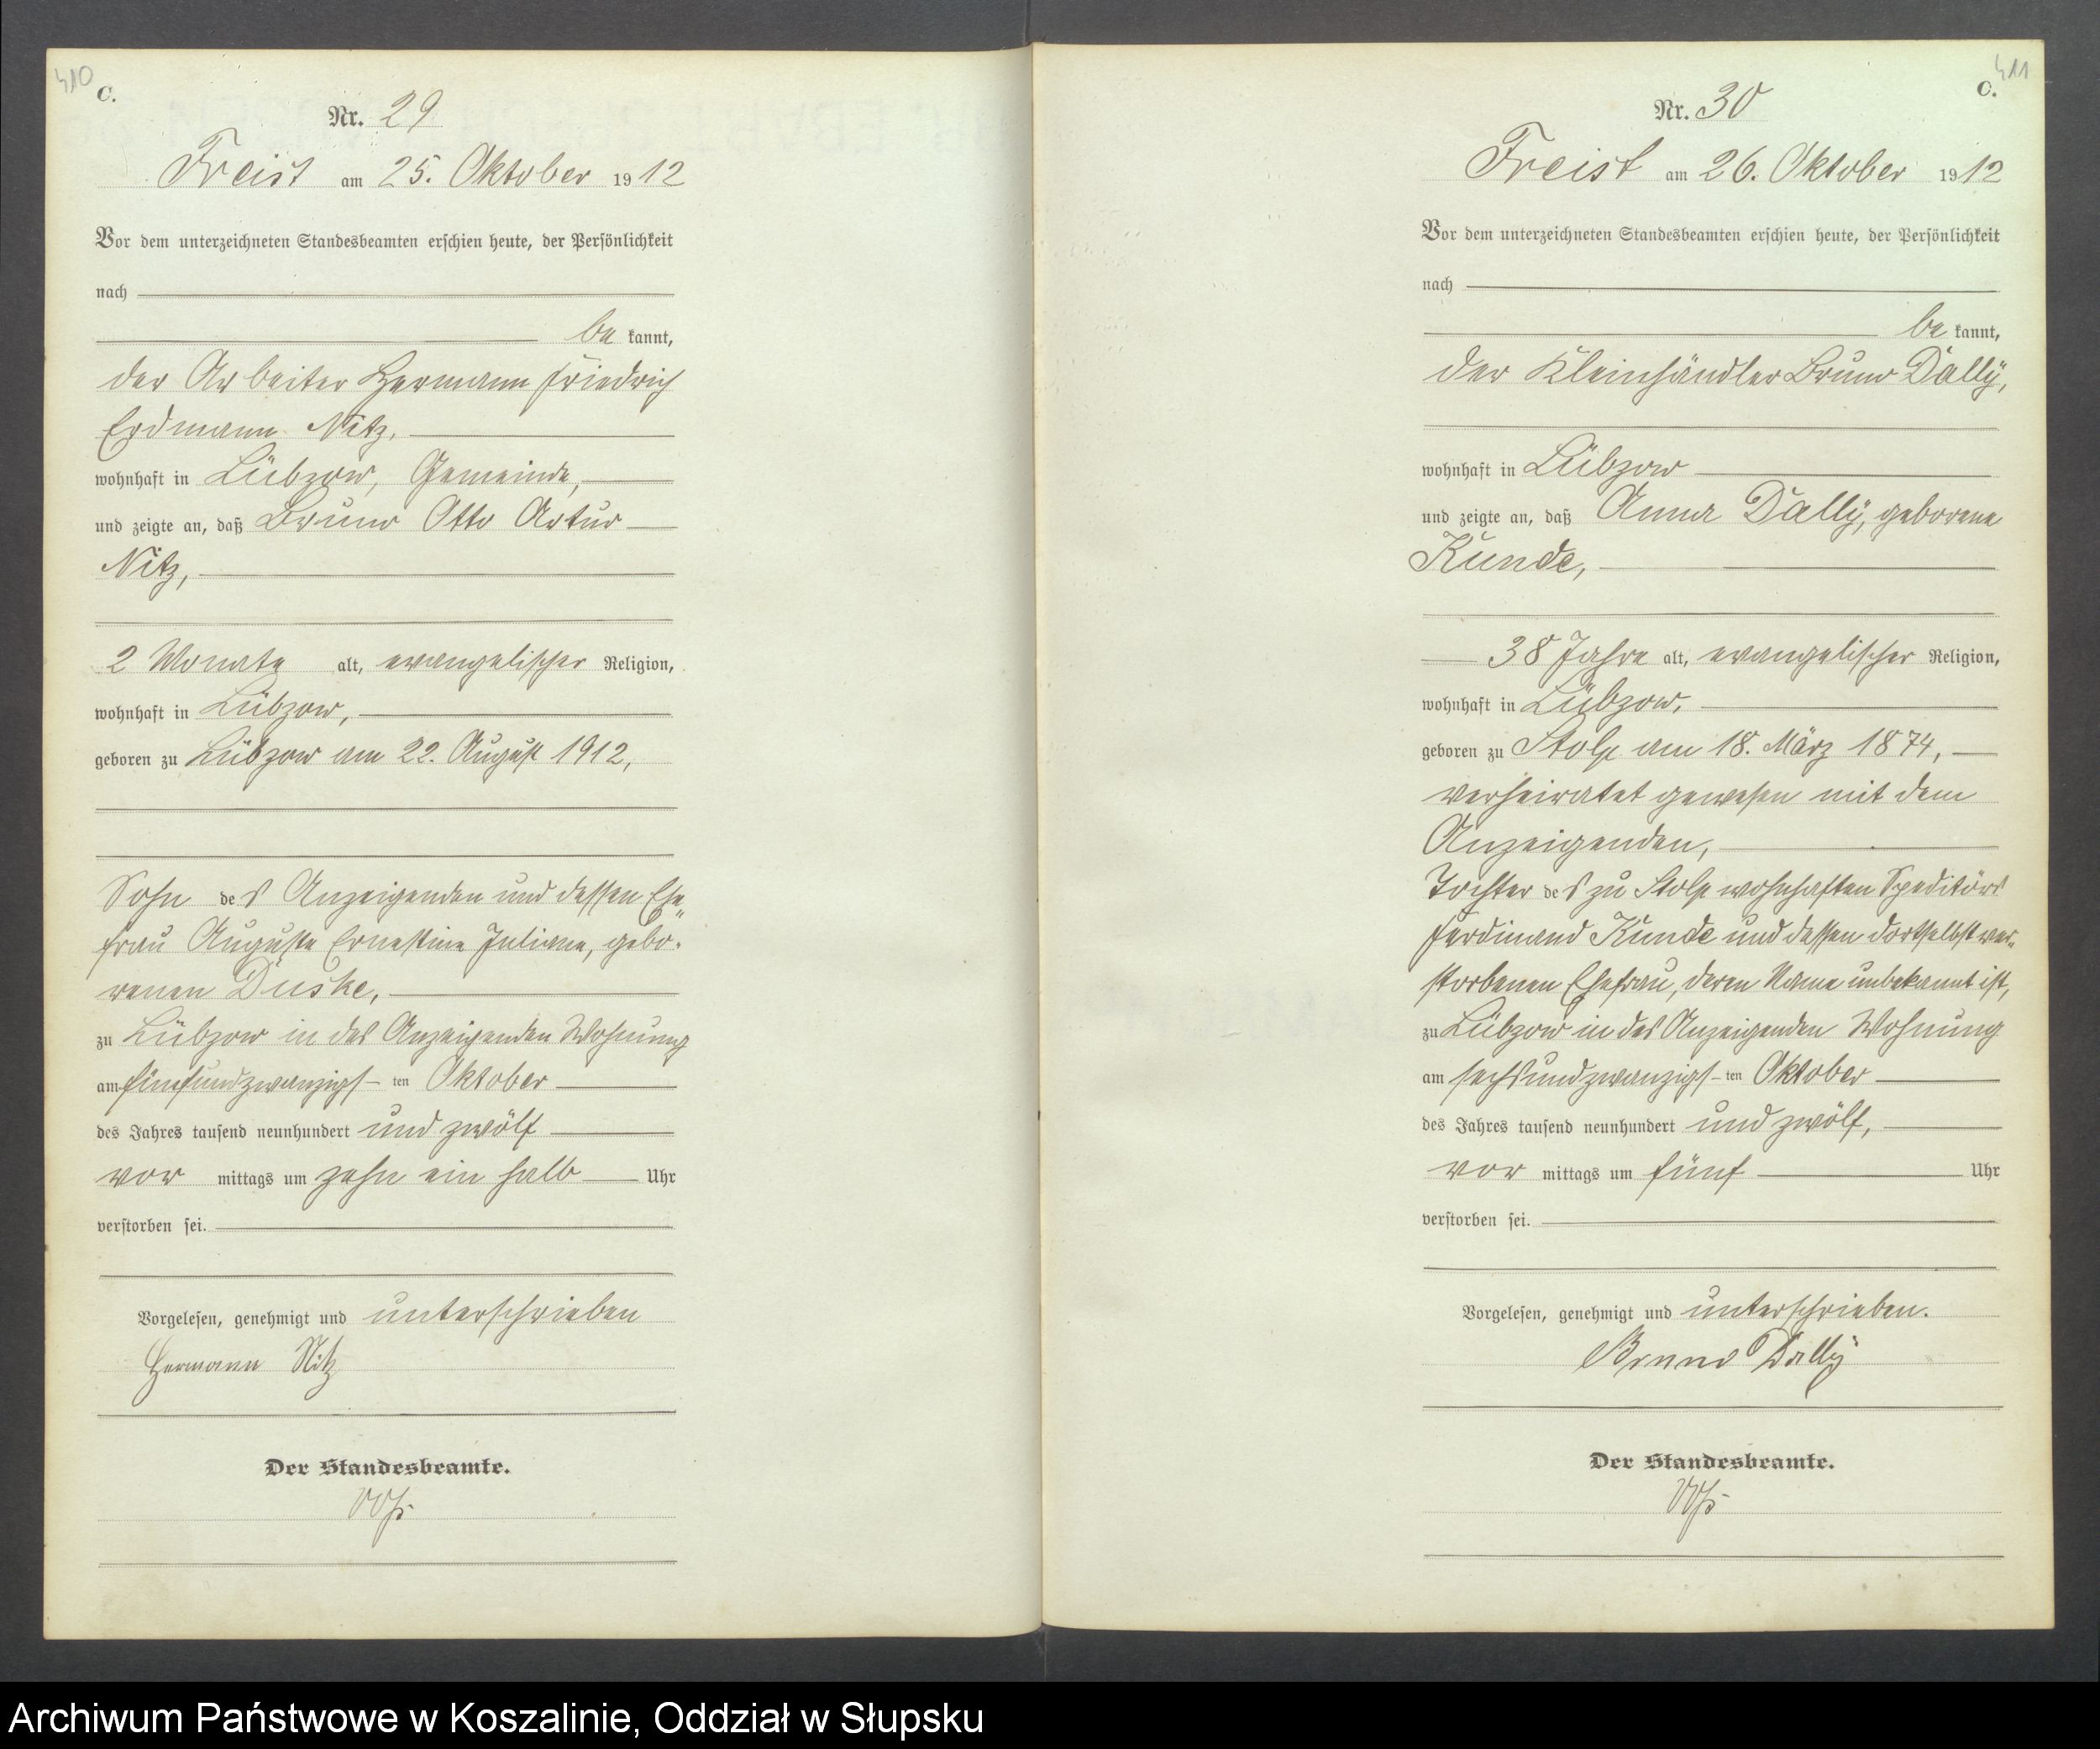 410
C.
Nr. 29
Freist am 25. Oktober 1912
Vor dem unterzeichneten Standesbeamten erschien heute, der Persönlichkeit
nach
be kannt,
der Arbeiter Hermann Friedrich
Erdmann Nitz,
wohnhaft in Lübzow, Gemeinde,
und zeigte an, daß Bruno Otto Artur
Nitz,
2 Monate alt, evangelischer Religion,
wohnhaft in Lübzow,
geboren zu Lübzow am 22. August 1912,
Sohn des Anzeigenden und dessen Ehe„
frau Auguste Ernestine Juliane, gebo„
renen Duske,
zu Lübzow in des Anzeigenden Wohnung
am fünfundzwanzigs-ten Oktober
des Jahres tausend neunhundert und zwölf
vor mittags um zehn ein halb Uhr
verstorben sei.
Vorgelesen, genehmigt und unterschrieben
Hermann Nitz
Der Standesbeamte.
411
C.
Nr. 30
Freist am 26. Oktober 1912
Vor dem unterzeichneten Standesbeamten erschien heute, der Persönlichkeit
nach
be kannt,
der Kleinhändler Bruno Dally,
wohnhaft in Lübzow
und zeigte an, daß Anna Dally, geborene
Kunde,
38 Jahre alt, evangelischer Religion,
wohnhaft in Lübzow,
geboren zu Stolp am 18. März 1874,
verheiratet gewesen mit dem
Anzeigenden,
Tochter des zu Stolp wohnhaften Spediteurs
Ferdinand Kunde und dessen dortselbst ver„
storbenen Ehefrau, deren Name unbekannt ist,
zu Lübzow in des Anzeigenden Wohnung
am sechsundzwanzigs-ten Oktober
des Jahres tausend neunhundert und zwölf,
vor mittags um fünf Uhr
verstorben sei.
Vorgelesen, genehmigt und unterschrieben.
Bruno Dally
Der Standesbeamte.
Archiwum Państwowe w Koszalinie, Oddział w Słupsku